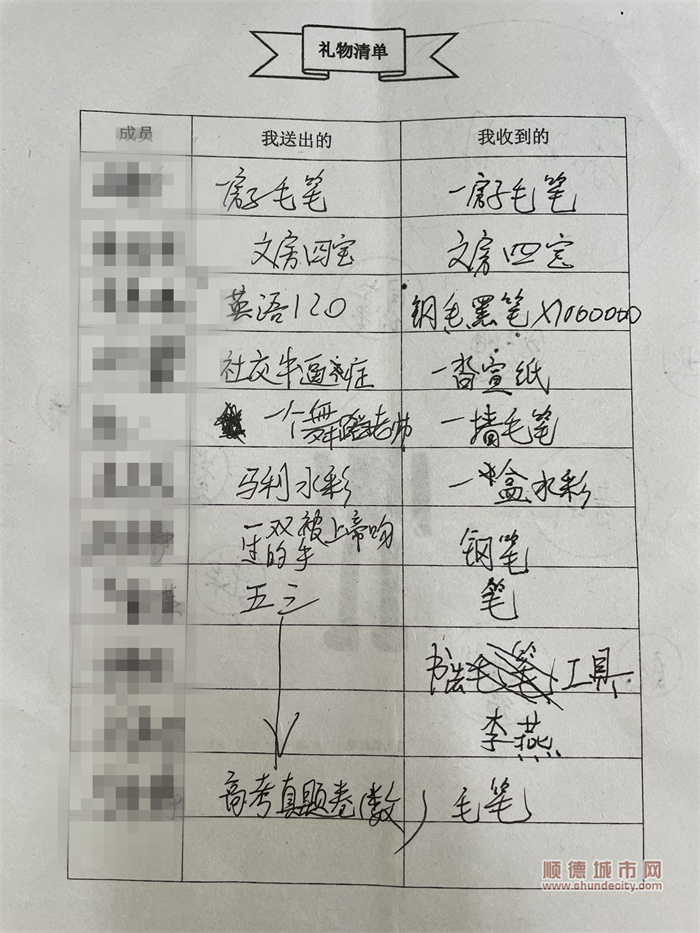 礼物清单
成员 我送出的 我收到的
一房子毛笔 一房子毛笔
文房四宝 文房四宝
英语120 钢毛黑笔X1000000
社交牛逼症 一沓宣纸
一个舞蹈老师 一墙毛笔
马利水彩 一盒水彩
一双被上帝吻
过的手 钢笔
五三 笔
书法 工具
李燕
高考真题卷(数) 毛笔
顺德城市网
www.shundecity.com